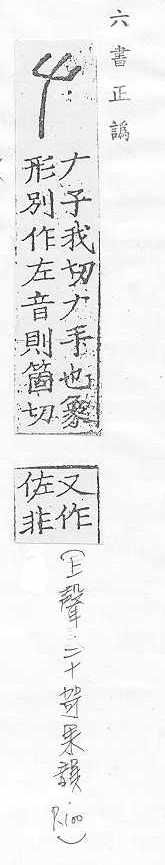 六書正譌
𠂇子我切𠂇手也象
形別作左音則箇切
又作
佐非
(上聲·二十哿果韻 P.100)